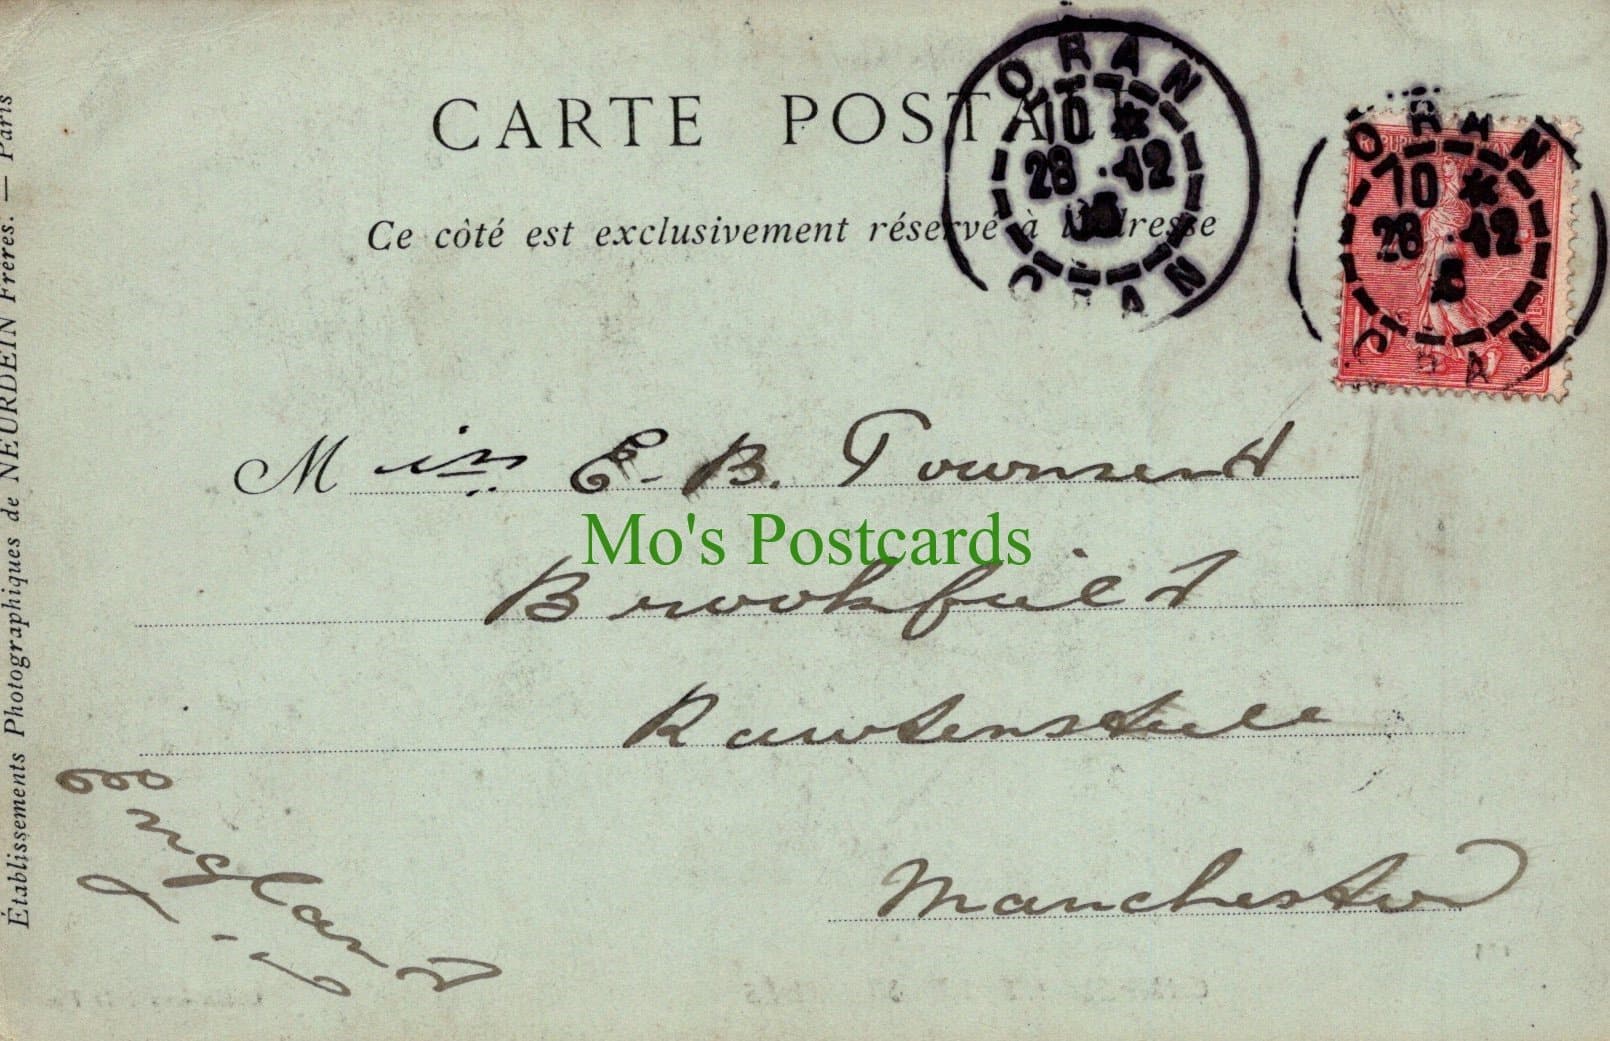 CARTE POSTALE
Ce côté est exclusivement réservé à l'adresse
ORAN
10 *
28 · 12
ORAN
ORAN
10 *
28 · 12
ORAN
Miss E. B. Townsend
Mo's Postcards
Brookfield
Rawtenstall
Manchester
England
Établissements Photographiques de NEURDEIN Frères. — Paris